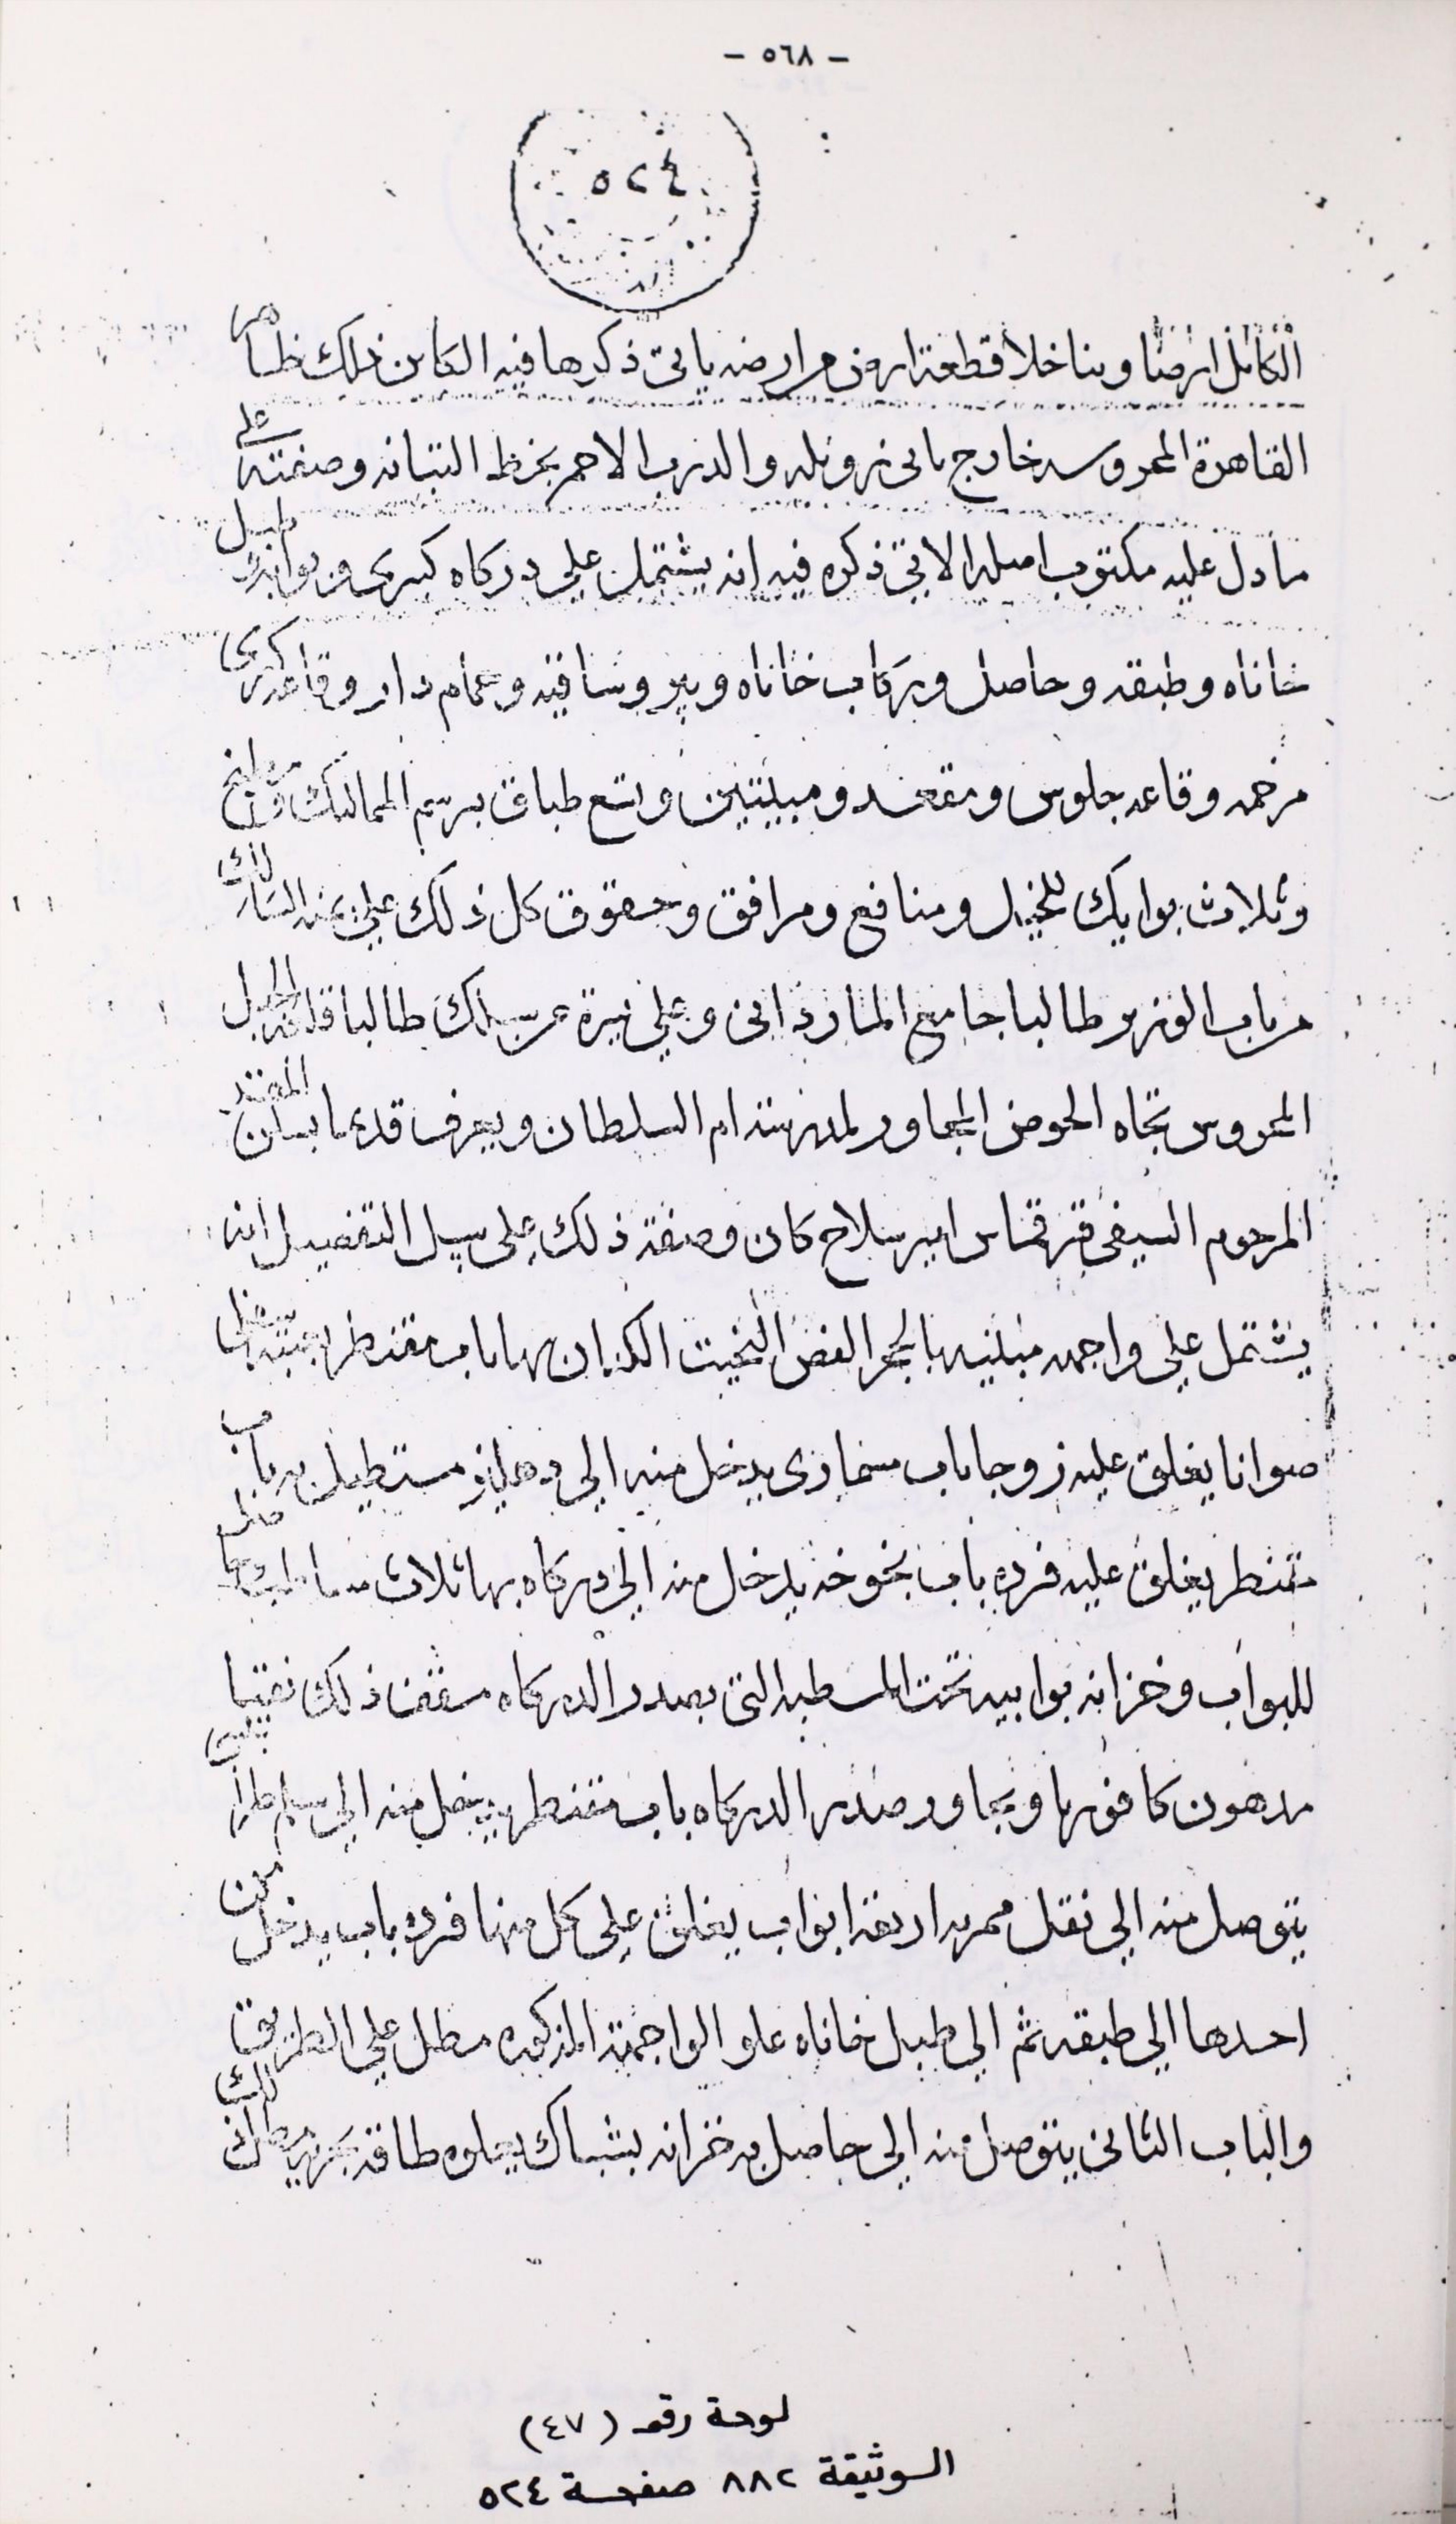 - ٥٦٨ -
٥٢٤
الكامل ارضا وبنا خلا قطعة ارض من ارضه ياتى ذكرها فيه الكاين ذلك ظاهر
القاهرة المحروسه خارج بابى زويله والدرب الاحمر بخط التبانه وصفته على
ما دل عليه مكتوب اصله الاتى ذكره فيه انه يشتمل على دركاه كبرى وبوابه وطبل
خاناه وطبقه وحاصل وركاب خاناه وبير وساقيه وحمام دار وقاعه كبرى
مرخمه وقاعه جلوس ومقعد ومبيتين وتسع طباق برسم المماليك ومطبخ
وثلاث بوايك للخيل ومنافع ومرافق وحقوق كل ذلك على يمنه السالك
من باب الوزير طالبا جامع الماردانى وعلى يسرة من سلك طالبا قلعه الجبل
المحروس تجاه الحوض المجاور لمدرسة ام السلطان ويعرف قديما بسكن المقتد
المرحوم السيفى قرقماس امير سلاح كان وصفة ذلك على سبيل التفصيل انه
يشتمل على واجهه مبنيه بالحجر الفص النحيت الكدان بها باب مقنطر بعتبه سفلى
صوانا يغلق عليه زوجا باب يدخل منه الى دهليز مستطيل به باب
مقنطر يغلق عليه فرده باب بخوخه يدخل منه الى دركاه بها ثلاث مساطب
للبواب وخزانه بوابيه تحت المسطبه التى بصدر الدركاه مسقف ذلك نقيا
مدهون كافوريا ويجاور صدر الدركاه باب مقنطر يدخل منه الى سلم
يتوصل منه الى نقل ممر به اربعة ابواب يغلق على كل منها فرده باب يدخل من
احدها الى طبقه ثم الى طبل خاناه علو الواجهة المذكوره مطل على الطريق
والباب الثانى يتوصل منه الى حاصل به خزانه بشباك يعلوه طاقه
لوحة رقم (٤٧)
الوثيقة ٨٨٢ صفحة ٥٢٤